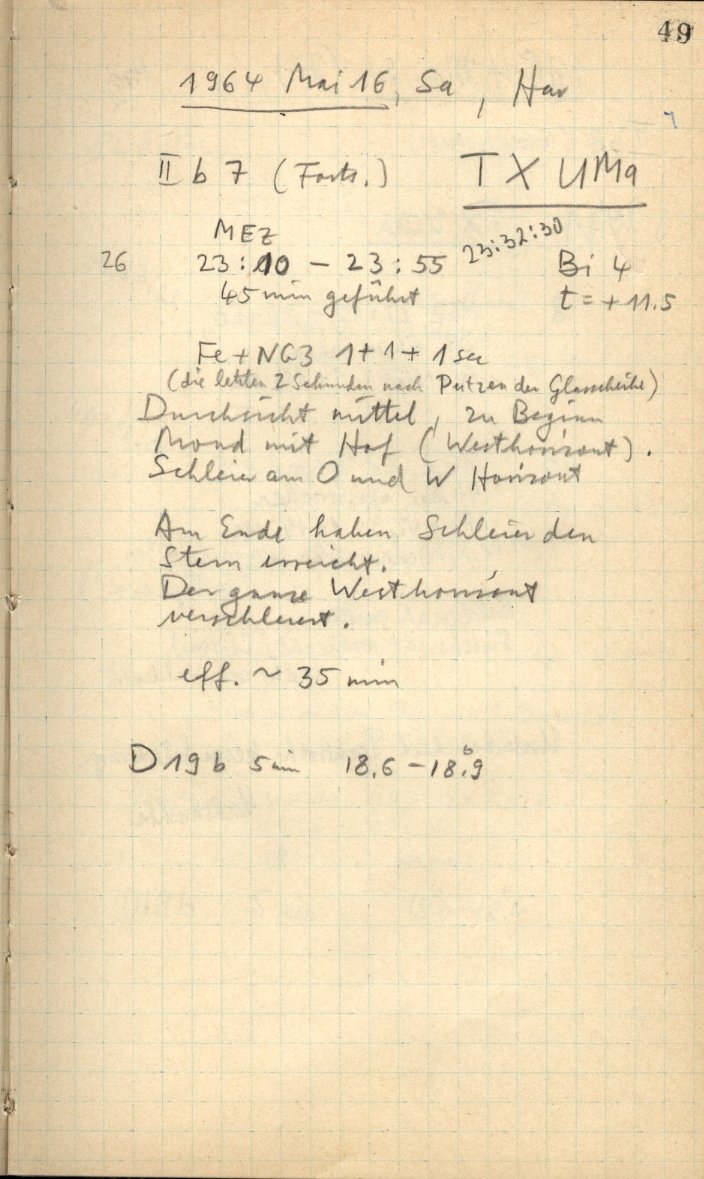 49
1964 Mai 16, Sa, Hav
7
II b 7 (Forts.) TX UMa
MEZ
26 23:10 - 23:55 23:32:30 Bi 4
45 min geführt t = + 11.5
Fe + NG3 1 + 1 + 1 sec
(die letzten 2 Sekunden nach Putzen der Glasscheibe)
Durchsicht mittel, zu Beginn
Mond mit Hof (Westhorizont).
Schleier am O und W Horizont
Am Ende haben Schleier den
Stern erreicht.
Der ganze Westhorizont
verschleiert.
eff. ~ 35 min
D 19 b 5 min 18.6 - 18.9